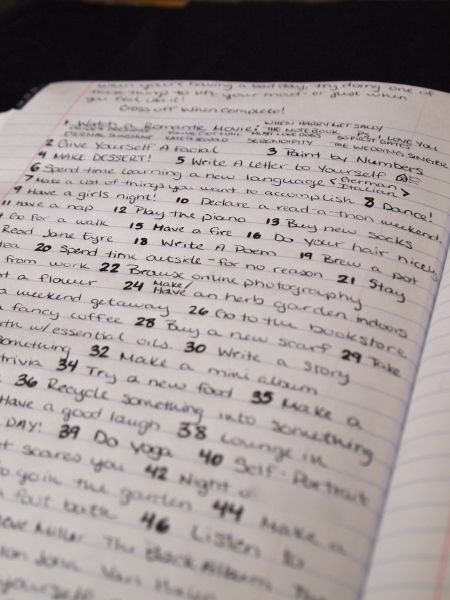 When you're having a bad day, try doing one of
these things to lift your mood - or just when
you feel like it!
Cross off when complete!
1 Watch a Romantic Movie: WHEN HARRY MET SALLY
THE NOTEBOOK P.S. I LOVE YOU
ETERNAL SUNSHINE YOU'VE GOT MAIL 50 FIRST DATES
KATE & LEOPOLD SERENDIPITY THE WEDDING SINGER
2 Give Yourself A Facial 3 Paint by Numbers
4 MAKE DESSERT! 5 Write A Letter to Yourself
6 Spend time learning a new language <German Italian>
7 Make a list of things you want to accomplish 8 Dance!
9 Have a girls night! 10 Declare a read-a-thon weekend.
11 Have a nap 12 Play the piano 13 Buy new socks
Go for a walk 15 Have a fire 16 Do your hair nicely
Read Jane Eyre 18 Write A Poem 19 Brew a pot
tea 20 Spend time outside - for no reason 21 Stay
from work 22 Browse online photography
a flower 24 Make/Have an herb garden indoors
a weekend getaway 26 Go to the bookstore
fancy coffee 28 Buy a new scarf 29 Take
w/ essential oils. 30 Write a story
something 32 Make a mini album
trivia 34 Try a new food 35 Make a
36 Recycle something into something
Have a good laugh 38 Lounge in
DAY! 39 Do Yoga 40 Self-Portrait
scares you 42 Night
the garden 44 Make a
foot bath 46 Listen to
Steve Miller The Black Album
John Van
yourself